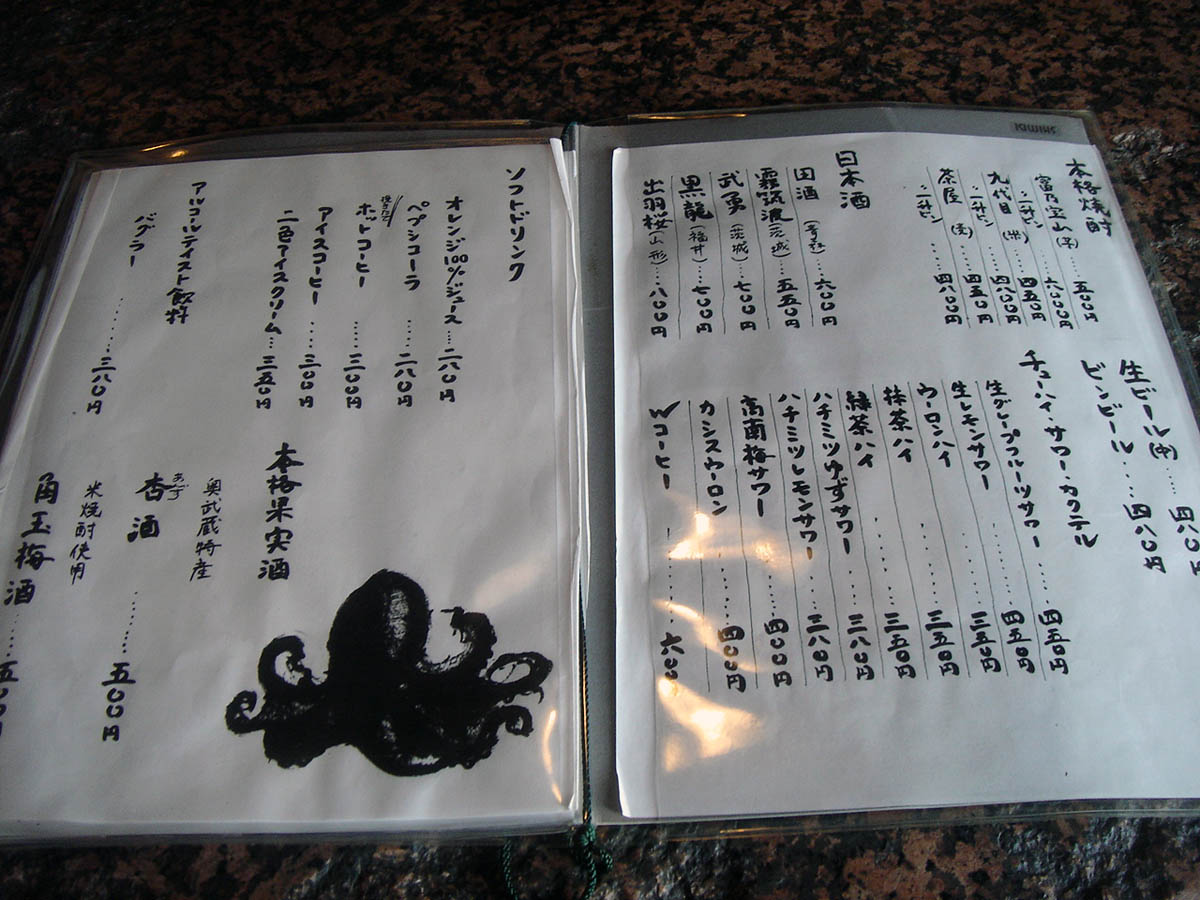 本格焼酎
富乃宝山(芋)…五00円
〃二升ビン…六000円
九代目(米)…四五0円
〃二升ビン…四八00円
茶屋(麦)…四五0円
〃二升ビン…四八00円
日本酒
田酒(青森)…六00円
霧筑波(茨城)…五五0円
武勇(茨城)…七00円
黒龍(福井)…七00円
出羽桜(山形)…八00円
生ビール(中)…四八0円
ビンビール…四八0円
チューハイ・サワー・カクテル
生グレープフルーツサワー…四五0円
生レモンサワー…四五0円
ウーロンハイ…三五0円
抹茶ハイ…三五0円
緑茶ハイ…三五0円
ハチミツゆずサワー…三八0円
ハチミツレモンサワー…三八0円
高南梅サワー…四00円
カシスウーロン…四00円
Wコーヒー…六00
ソフトドリンク
オレンジ100%ジュース…二八0円
ペプシコーラ…二八0円
挽きたてホットコーヒー…三00円
アイスコーヒー…三00円
二色アイスクリーム…三五0円
アルコールテイスト飲料
バクラー…三八0円
本格果実酒
奥武蔵特産
杏酒…五00円
米焼酎使用
角玉梅酒…五00円
SHIMBI